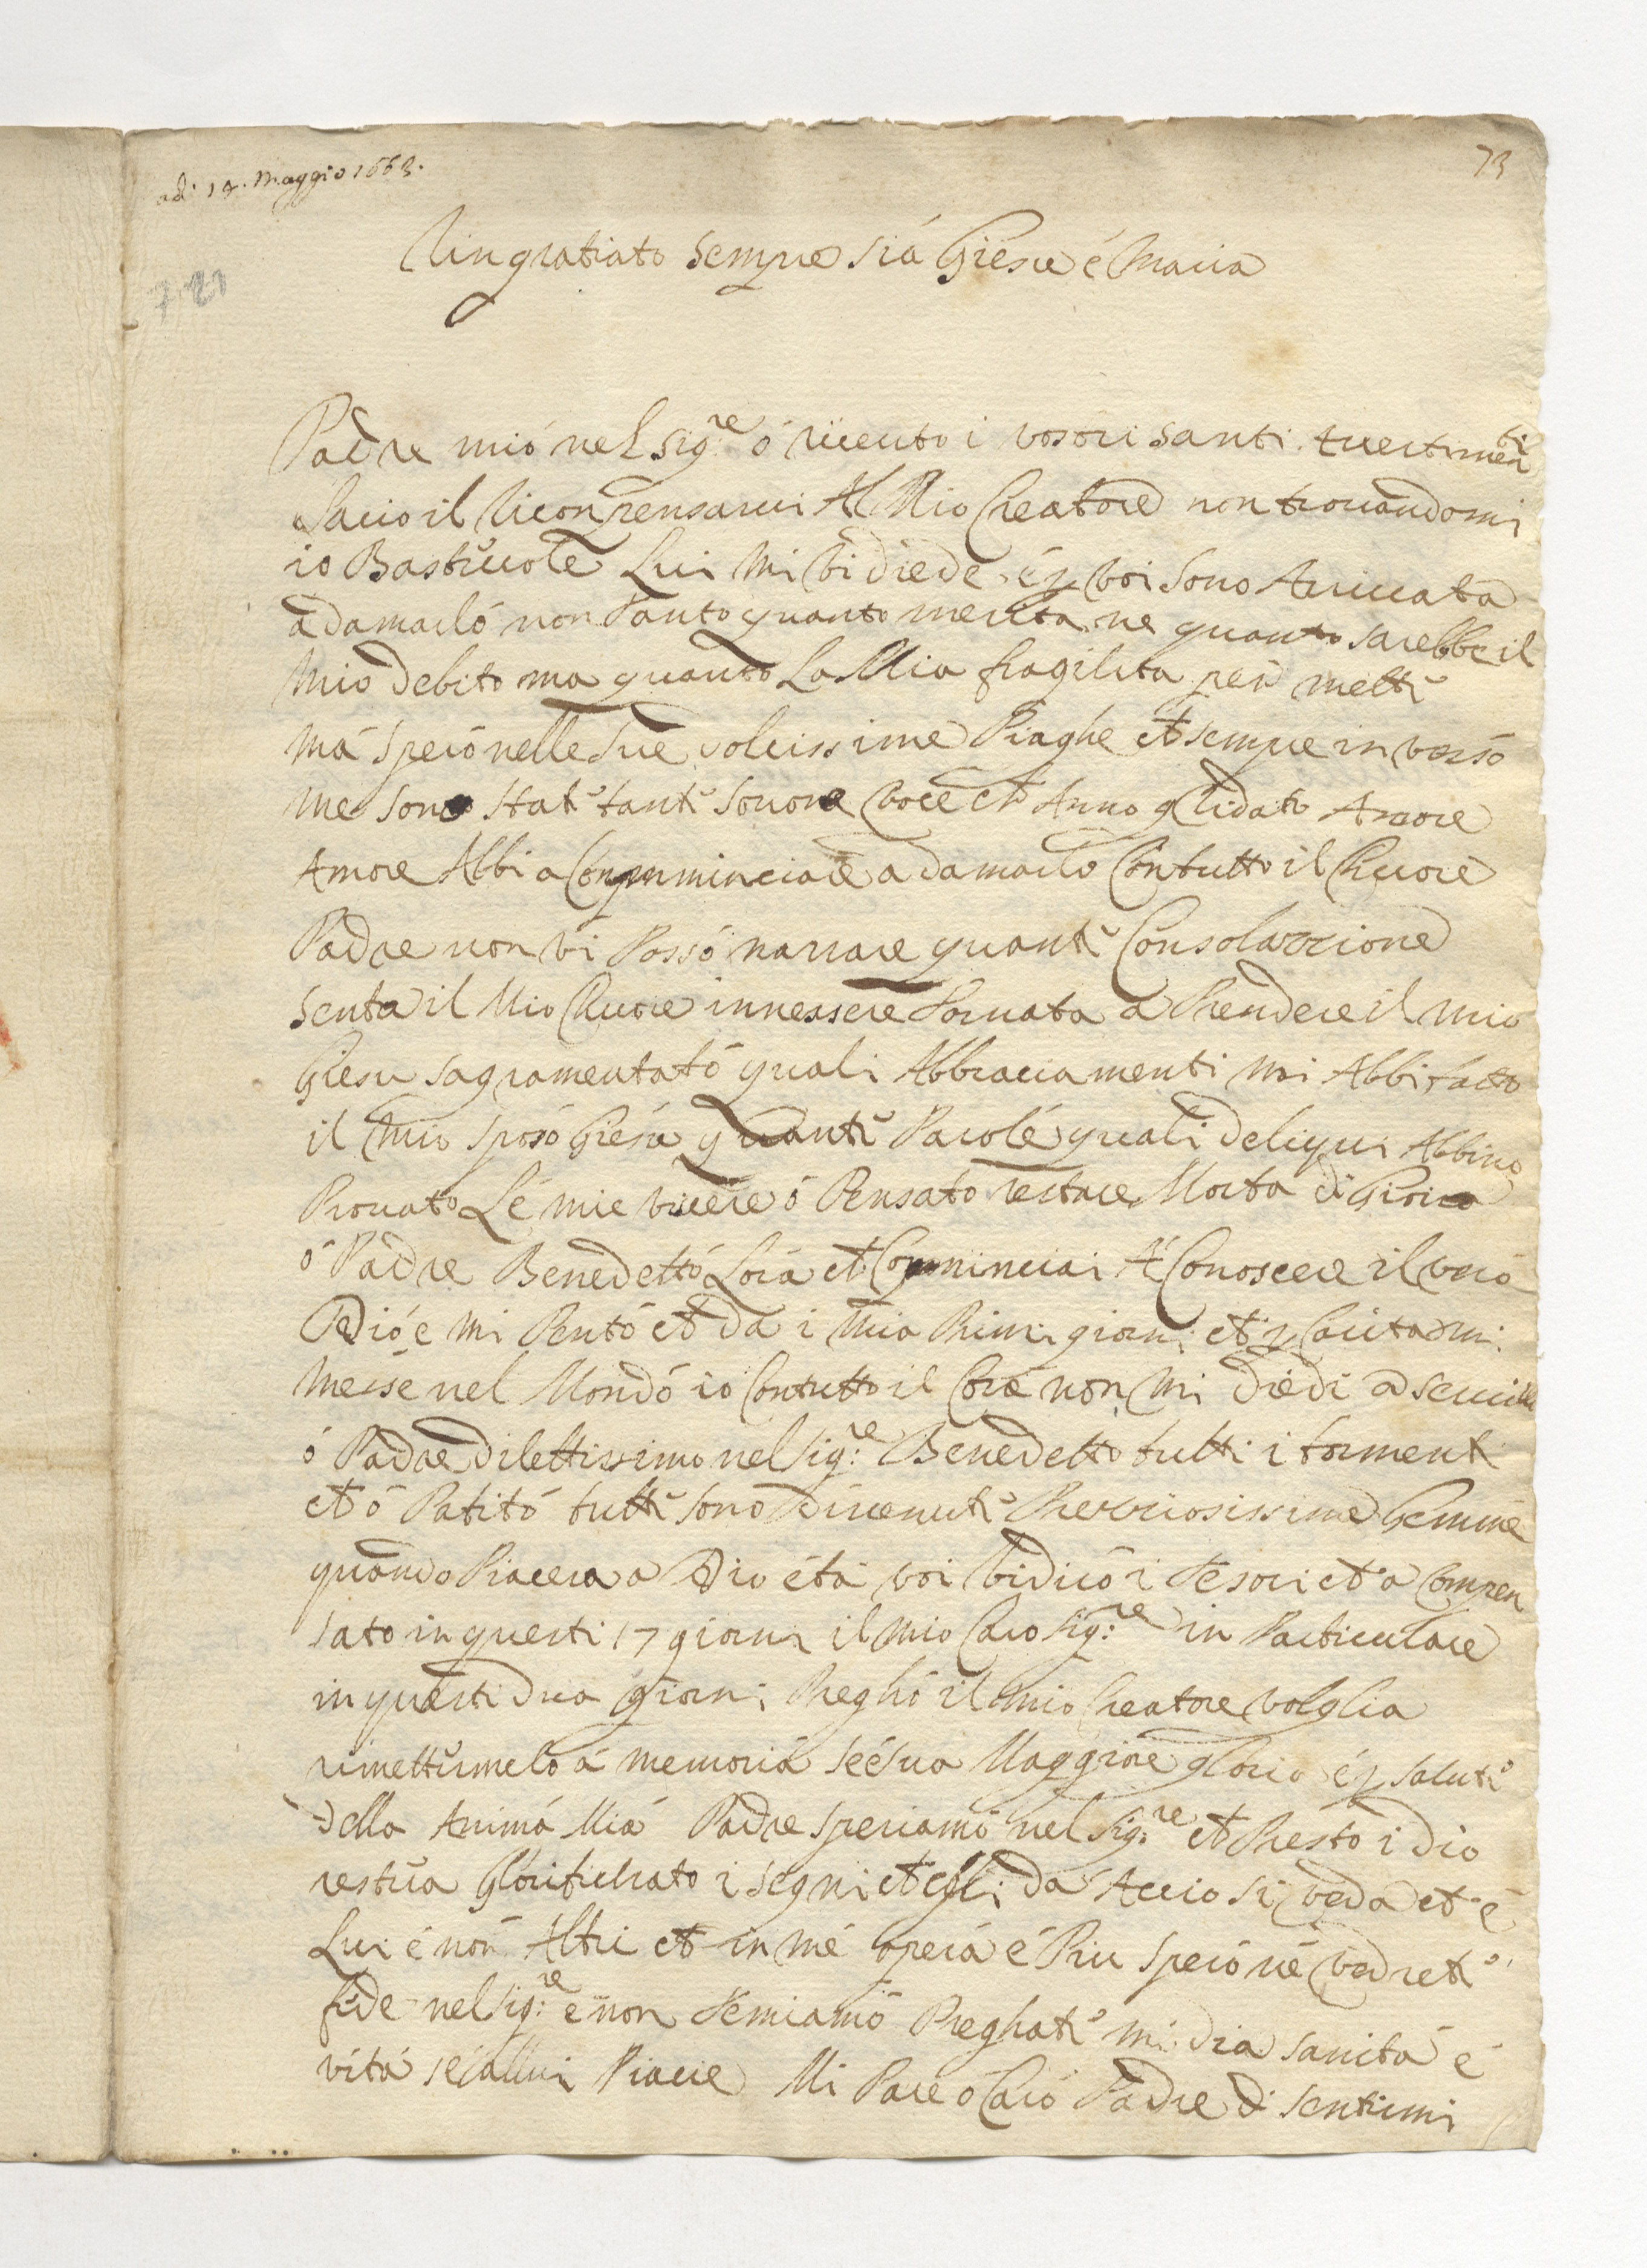 adi 19. Maggio 1663.
73
7 21
Ringratiato sempre sia Giesu é Maria
Padre mio nel Sig.re ó riceuto i vostri santi
Lacio il riconpensarvi Al Mio Creatore non trovandomi
io Bastevole Lui mi vi diede é p voi sono Arivata
ad amarló non tanto quanto merita ne quanto sarebbe il
mio debito ma quanto La Mia fragilita per metti
má speró nelle sue dolcissime Piaghe et sempre in verso
me sono stati tanti sonore voce ch Anno gridato Amore
Amore Abbi a Comminciare ad amarlo Con tutto il Chuore
Padre non vi Possó narrare quanti Consolazzione
senta il Mio Chuore innessere tornata a Prendere il mio
Giesu sagramentató quali Abbraciamenti mi Abbi fatto
il mio sposó Giesu quanti Parolé quali deliqui Abbino
Provato Lé mie viscere ó Pensato restare Morta di Gioia
ó Padre Benedettó Lorá et Comminciai A Conoscere il veró
Dió e mi Pentó et da i mia Primi giorni et p Carita mi
messe nel Mondó io Con tutto il Core non mi diedi a
ó Padre dilettissimo nel Sig:re Benedetto tutti i tormenti
et ó Patitó tutti sono divenuti Prezziosissime Gemme
quando Piacera a Dio é tá voi vi diró i Tesori et a Compen
sato in questi 17 giorni il mio Caro Sig:re in Particulare
in questi dua giorni Preghó il mio Creatore volglia
rimettermeló á memoriá se é sua Maggiore gloria é p saluti
della Animá Miá Padre speriamó nel Sig:re et Presto i dio
restera Glorifichato i segni et egli da Accio si veda et é
Lui é non Altri et in mé operá é Piu speró né vedreti
fide nel Sig:re e non temiamó Preghati mi dia sanitá é
vitá sé allui Piace Mi Pare o Caró Padre di sentirmi